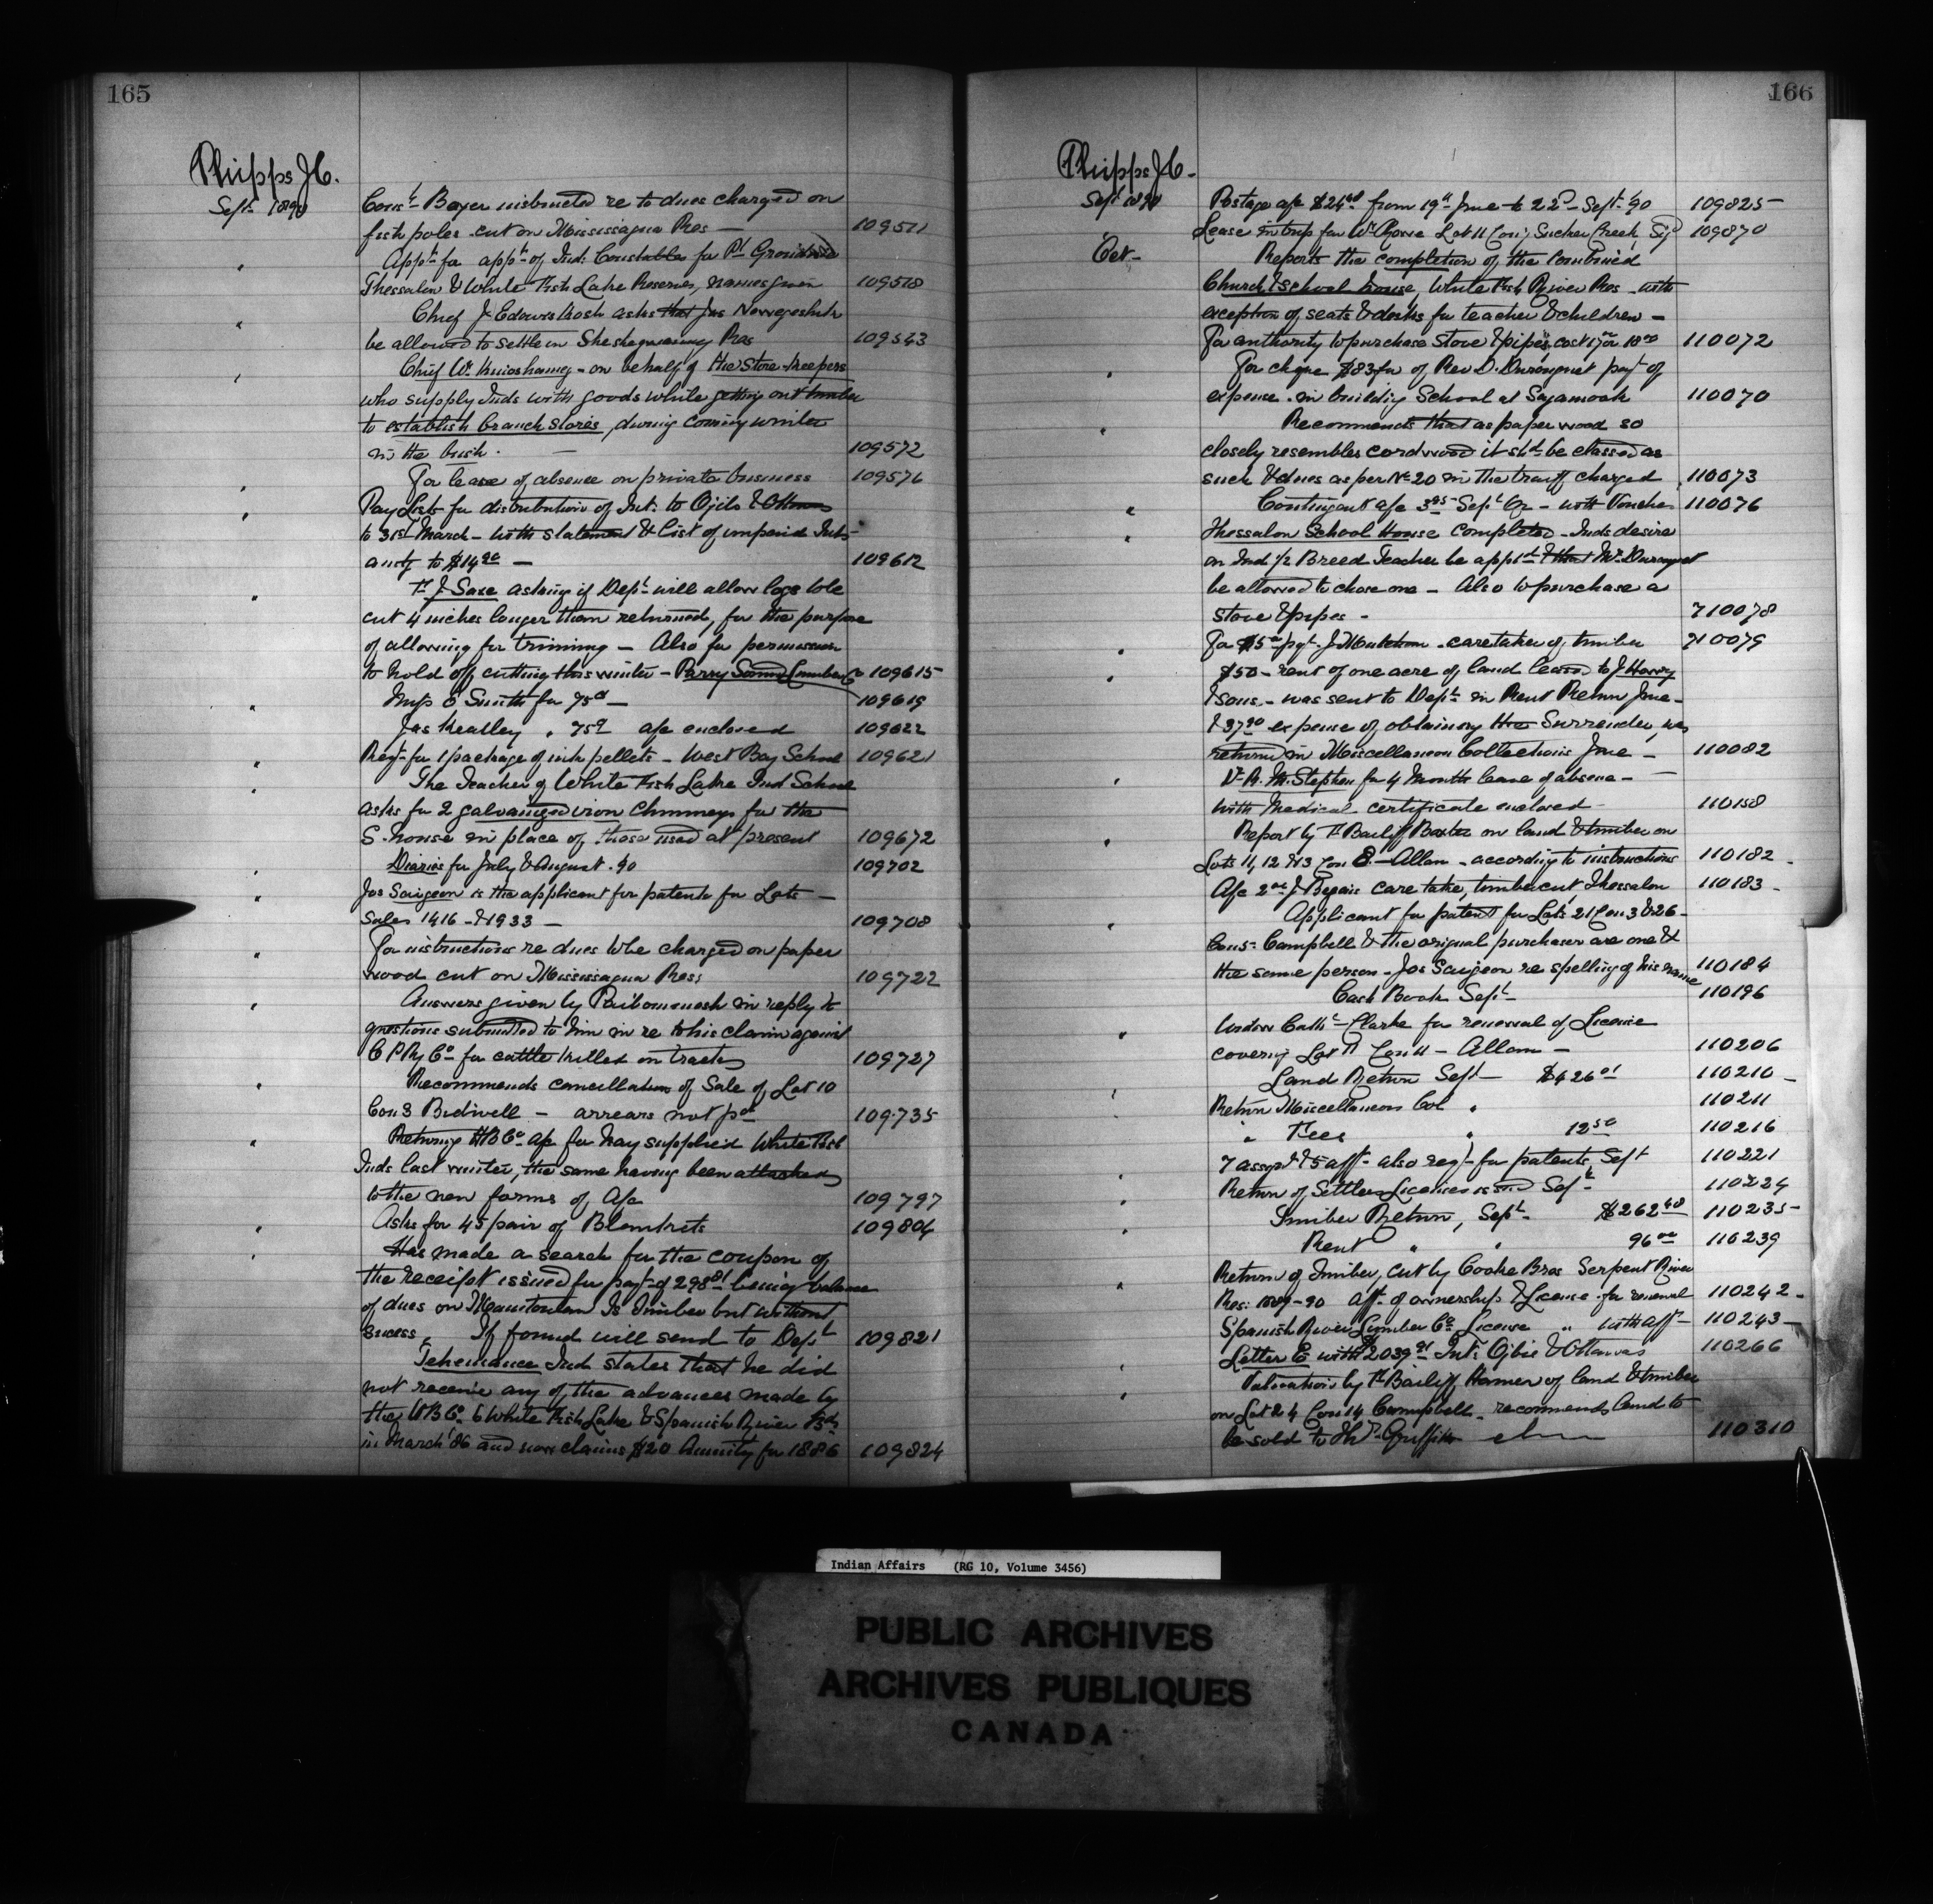 165
Phipps J.C.
Sept 1890
Const Boyer instructed re to dues charged on
fish poles cut on Mississagua Res — 109511
Appt for appt of Ind: Constables for Pt Grondine
Thessalon & White Fish Lake Reserves, names given 109518
Chief J. Edowishkosh asks that Jas Nowegeshik
be allowed to settle in Sheshegwaning Res 109543
Chief Wm Kinoshameg - on behalf of the Store-keepers
who supply Inds with goods while getting out timber
to establish branch stores, during coming winter
in the bush. — 109572
For leave of absence on private business 109576
Pay Lists for distribution of Int: to Ojib & Ottawas
to 31st March - with statement & List of unpaid Inds
amtg to $14.90 — 109612
T. J. Saxe asking if Dept will allow logs to be
cut 4 inches longer than returned, for the purpose
of allowing for trimming — Also for permission
to hold off cutting this winter - Parry Sound Lumber Co 109615
Mrs E Smith for 75c — 109619
Jas Keatley " 75c a/c enclosed 109622
Reqt for 1 package of ink pellets - West Bay School 109621
The Teacher of White Fish Lake Ind School
asks for 2 galvanized iron Chimneys for the
S. house in place of those used at present 109672
Diaries for July & August. 90 109702
Jos Saigeon is the applicant for patents for Lots —
Sales 1416 - & 1933 — 109708
For instructions re dues to be charged on paper
wood cut on Mississagua Res: 109722
Answers given by Paibomunsh in reply to
questions submitted to him in re to his claim against
C P Ry Co for cattle killed on track 109727
Recommends cancellation of Sale of Lot 10
Con 3 Bidwell — arrears not pd 109735
Returns H B Co a/c for hay supplied White Fish
Inds last winter, the same having been attached
to the new forms of A/c 109797
Asks for 45 pair of Blankets 109804
Has made a search for the coupon of
the receipt issued for payt of 298.81 being balance
of dues on Manitoulin Is timber but without
sucess. If found will send to Dept 109821
Tehemance Ind states that he did
not receive any of the advances made by
the H B Co to White Fish Lake & Spanish River Bds
in March '86 and now claims $20 Annuity for 1886 109824
166
Phipps J.C.
Sept 1890
Postage a/c $24 from 19th June to 22d Sept. 90 109825
Lease in trip for Wm Gorre Lot 11 Con; Sucker Creek, Sgd 109870
Oct —
Reports the completion of the combined
Church & School house, White Fish River Res - with
exception of seats & desks for teacher & children —
For authority to purchase stove & pipes, cost 17 or 18.00 110072
For cheque $83 fr of Rev D. Duronquet payt of
expense in building School at Sagamook 110070
Recommends that as paper wood so
closely resembles cordwood it shd be classed as
such & dues as per No 20 in the tariff charged 110073
Contingent a/c Sept Qr - with Voucher 110076
Thessalon School House completed - Inds desire
an Ind ½ Breed Teacher be appd & that Mr Duronquet
be allowed to chose one - Also to purchase a
stove & pipes - 710078
For $5 payt. J. caretaker of timber 710079
$50 - rent of one acre of land leased to J Harry
& sons - was sent to Dept in Rent Return June -
& 37.90 expense of obtaining the Surrender, was
returned in Miscellaneous Collections June — 110082
Dr R. M. Stephen for 4 Months leave of absence —
with Medical certificate enclosed 110158
Report by T. Bailiff Baxter on land & timber on
Lots 11, 12 & 13 Con 8 - Allan - according to instructions 110182
A/c 2.00 J. Begair care take, timber cut Thessalon 110183
Applicant for patent for Lots 21 Con 3 & 26 -
Cons - Campbell & the original purchaser are one &
the same person - Jos Saigeon re spelling of his name 110184
Cash Book Sept 110196
Widow Cathe Clarke for renewal of License
covering Lot 11 Con 11 — Allan — 110206
Land Return Sept $426.01 110210
Return Miscellaneous Col " 110211
" Fees " 12.50 110216
7 assgt & 5 aff - also reqt for patents, Sept 110221
Return of Settlers Licenses issued Sept 110224
Timber Return, Sept. $262.48 110235
Rent " " 96.00 110239
Return of Timber, cut by Cooke Bros Serpent River
Res: 1889-90 Aff. of ownership & License for renewal 110242
Spanish River Lumber Co License " with aff 110243
Letter E with 2039.91 Int: Ojib & Ottawas 110266
Valuation by T. Bailiff Hamer of land & timber
on Lot 24 Con 14 Campbell - recommends land to
be sold to Griffith 110310
Indian Affairs (RG 10, Volume 3456)
PUBLIC ARCHIVES
ARCHIVES PUBLIQUES
CANADA